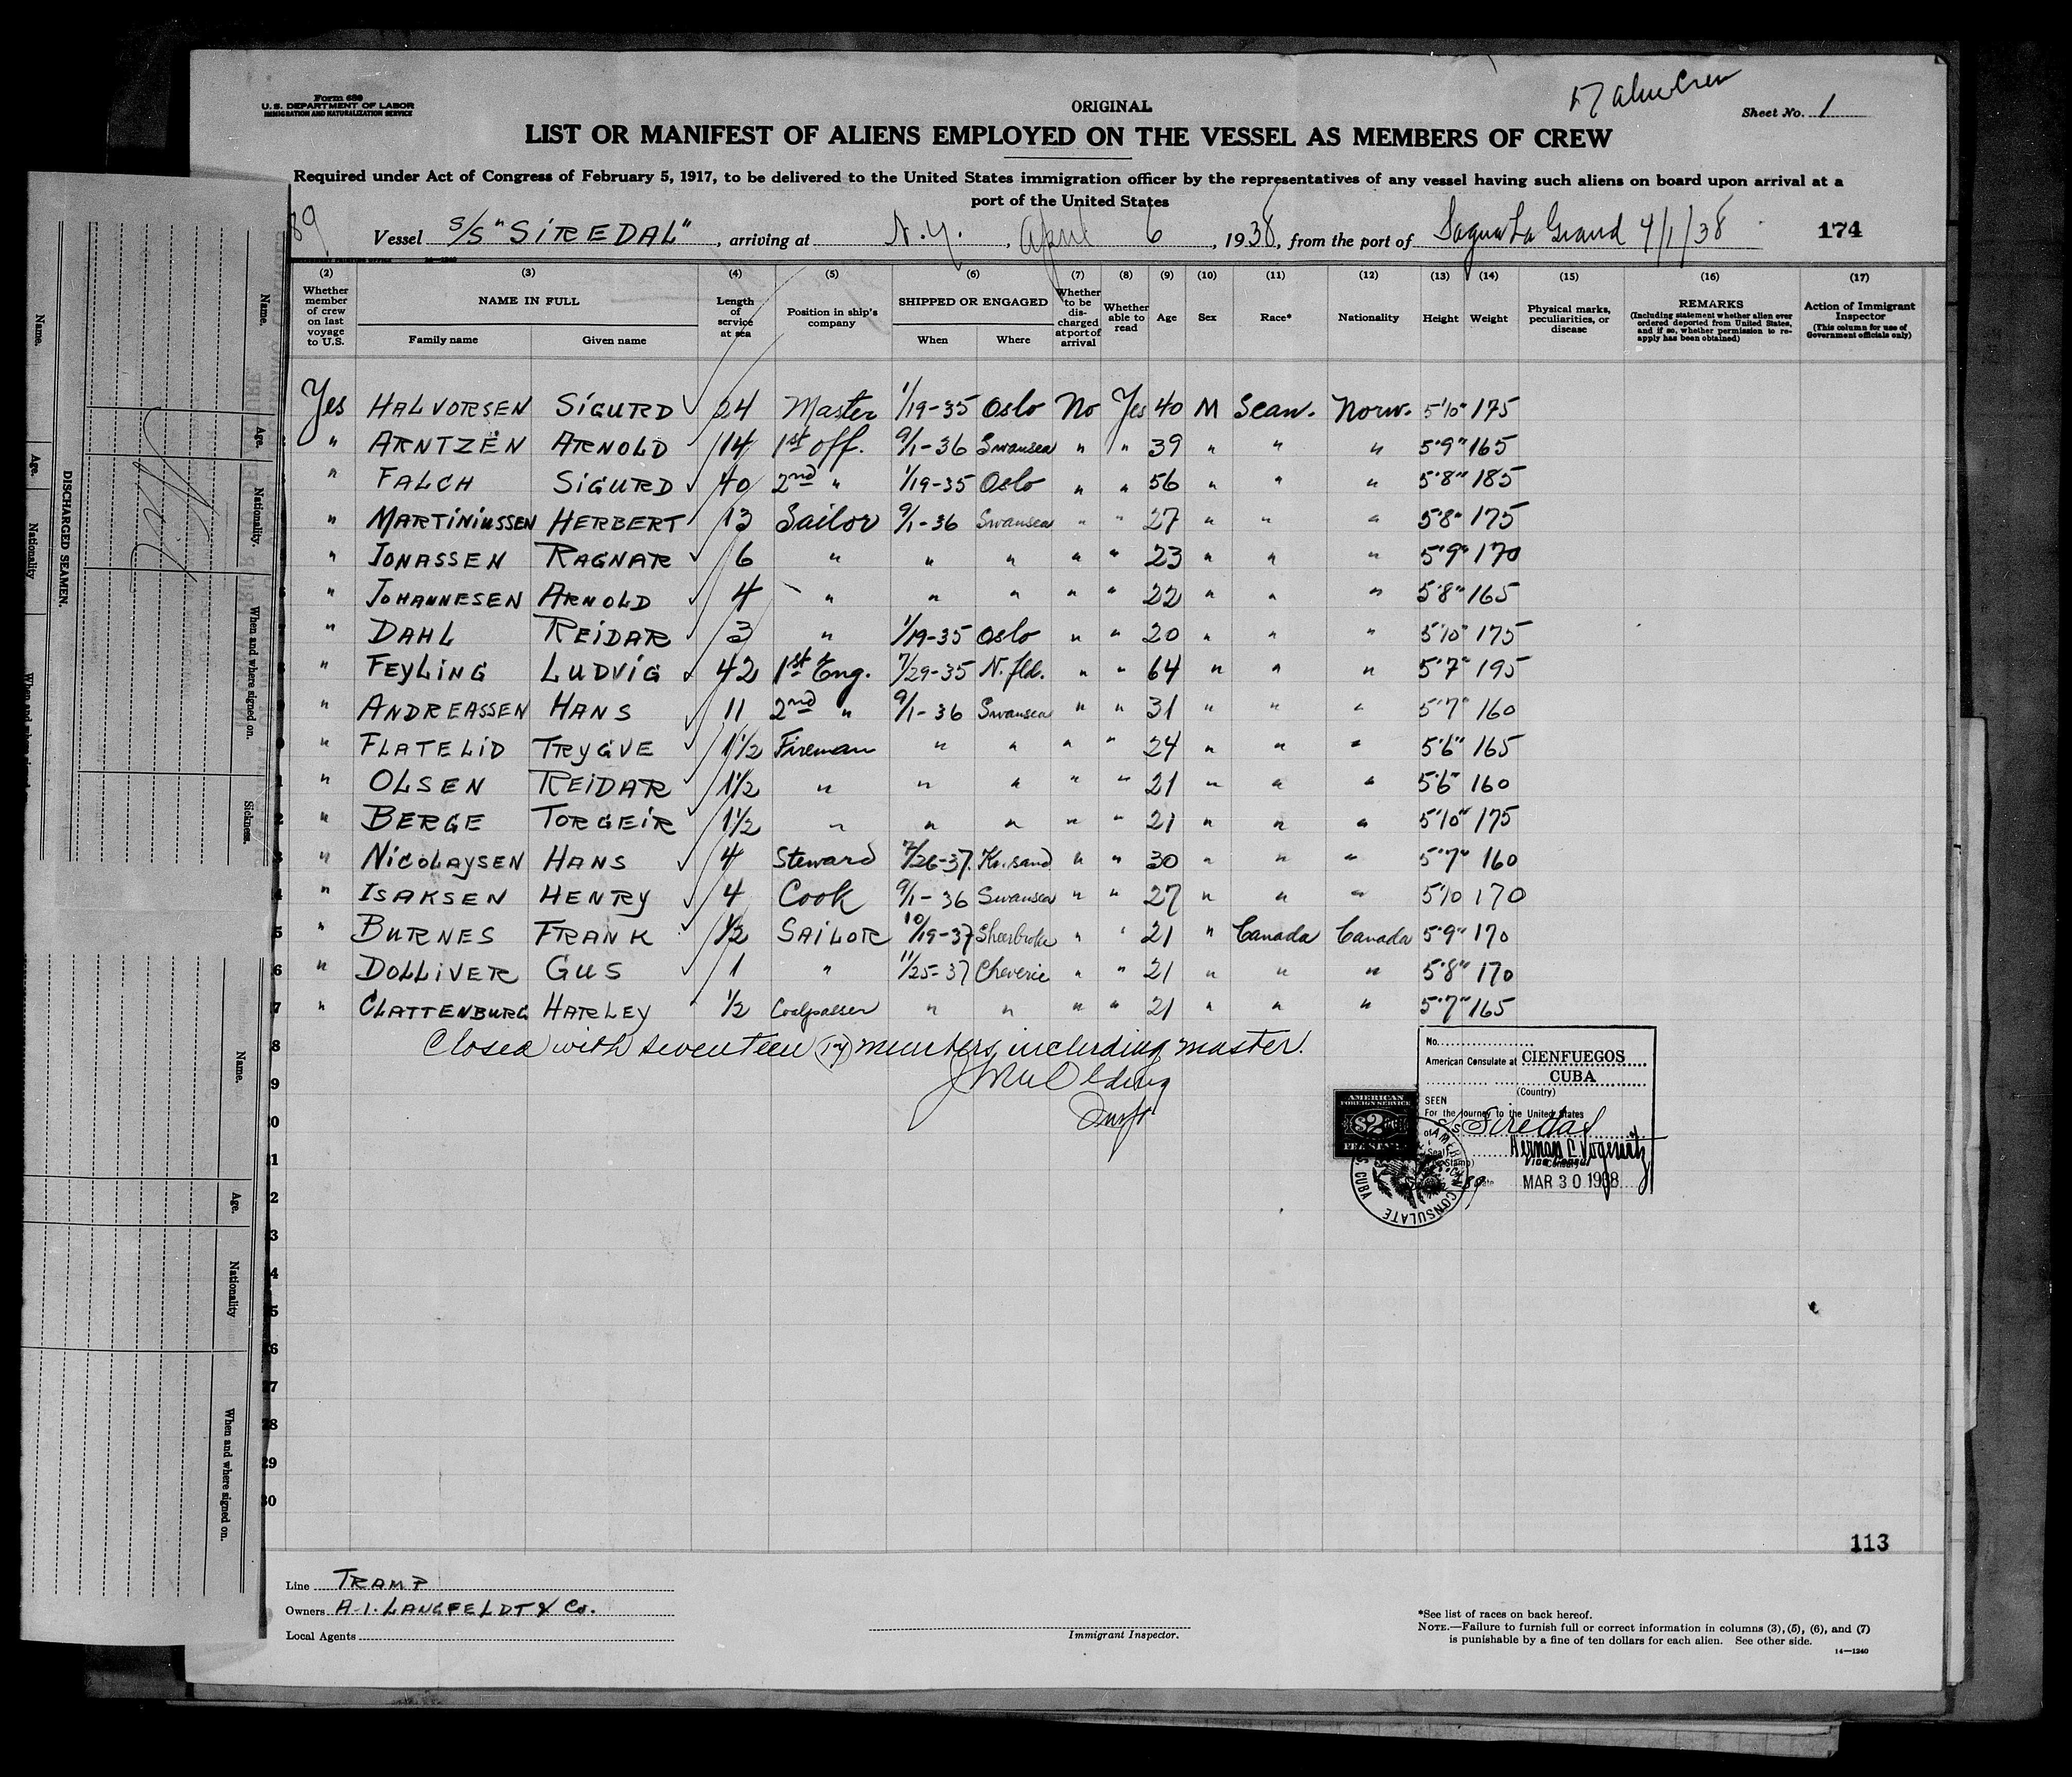 Form 680
U.S. DEPARTMENT OF LABOR
IMMIGRATION AND NATURALIZATION SERVICE
ORIGINAL
17 alien Crew
Sheet No. 1
LIST OR MANIFEST OF ALIENS EMPLOYED ON THE VESSEL AS MEMBERS OF CREW
Required under Act of Congress of February 5, 1917, to be delivered to the United States immigration officer by the representatives of any vessel having such aliens on board upon arrival at a
port of the United States
89 Vessel S/S "SIREDAL", arriving at N.Y., April 6, 1938, from the port of Sagua La Grand 4/1/38 174
(2) (3) (4) (5) (6) (7) (8) (9) (10) (11) (12) (13) (14) (15) (16) (17)
Whether member of crew on last voyage to U.S.
NAME IN FULL
Family name Given name
Length of service at sea
Position in ship's company
SHIPPED OR ENGAGED
When Where
Whether to be discharged at port of arrival
Whether able to read
Age
Sex
Race*
Nationality
Height
Weight
Physical marks, peculiarities, or disease
REMARKS
(Including statement whether alien ever ordered deported from United States, and if so, whether permission to reapply has been obtained)
Action of Immigrant Inspector
(This column for use of Government officials only)
Yes HALVORSEN SIGURD 24 Master 1/19-35 Oslo No Yes 40 M Scan. Norw. 5'10" 175
" ARNTZEN ARNOLD 14 1st off. 9/1-36 Swansea " " 39 " " " 5'9" 165
" FALCH SIGURD 40 2nd " 1/19-35 Oslo " " 56 " " " 5'8" 185
" MARTINIUSSEN HERBERT 13 Sailor 9/1-36 Swansea " " 27 " " " 5'8" 175
" JONASSEN RAGNAR 6 " " " " " 23 " " " 5'9" 170
" JOHANNESEN ARNOLD 4 " " " " " 22 " " " 5'8" 165
" DAHL REIDAR 3 " 1/19-35 Oslo " " 20 " " " 5'10" 175
" FEYLING LUDVIG 42 1st Eng. 7/29-35 N.fld. " " 64 " " " 5'7" 195
" ANDREASSEN HANS 11 2nd " 9/1-36 Swansea " " 31 " " " 5'7" 160
" FLATELID TRYGVE 1 1/2 Fireman " " " " 24 " " " 5'6" 165
" OLSEN REIDAR 1 1/2 " " " " " 21 " " " 5'6" 160
" BERGE TORGEIR 1 1/2 " " " " " 21 " " " 5'10" 175
" NICOLAYSEN HANS 4 Steward 7/26-37. Kr.sand " " 30 " " " 5'7" 160
" ISAKSEN HENRY 4 Cook 9/1-36 Swansea " " 27 " " " 5'10 170
" BURNES FRANK 1/2 SAILOR 10/19-37 Sheerbroke " " 21 " Canada Canada 5'9" 170
" DOLLIVER GUS 1 " 11/25-37 Cheverie " " 21 " " " 5'8" 170
" CLATTENBURG HARLEY 1/2 Coalpasser " " " " 21 " " " 5'7" 165
Closed with seventeen (17) members, including master.
No.
American Consulate at CIENFUEGOS
CUBA
(Country)
SEEN
For the journey to the United States
Siredal
Vice Consul
MAR 30 1938
AMERICAN FOREIGN SERVICE
$2
FEE STAMP
AMERICAN CONSULATE
CUBA
113
Line TRAMP
Owners A.I. LANGFELDT & Co.
Local Agents
Immigrant Inspector.
*See list of races on back hereof.
NOTE.—Failure to furnish full or correct information in columns (3), (5), (6), and (7)
is punishable by a fine of ten dollars for each alien. See other side.
14—1240
DISCHARGED SEAMEN.
Name. Age. Nationality. When and where signed on. Sickness.
Name. Age. Nationality When and where signed on.
Name. Age. Nationality